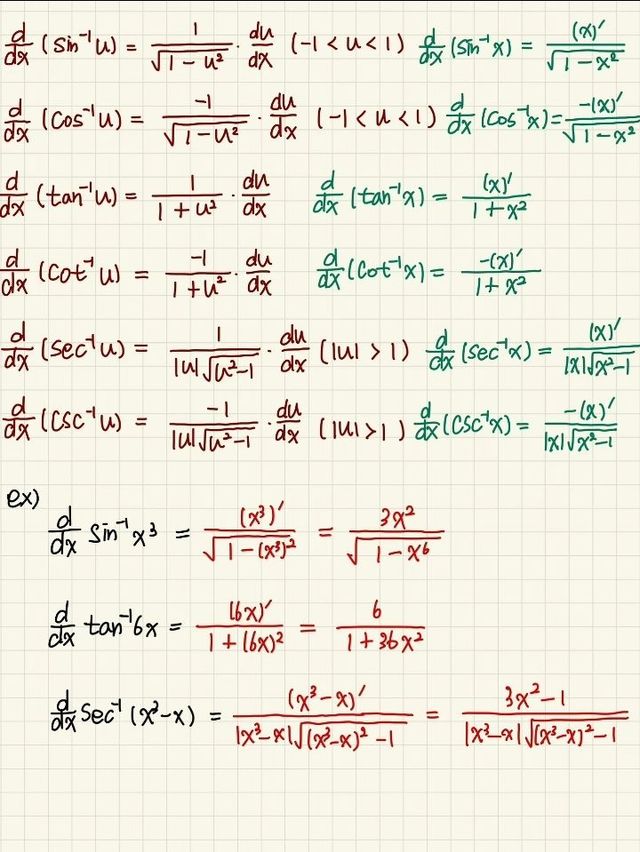 d/dx (sin⁻¹u) = 1/√(1-u²) · du/dx (-1 < u < 1) d/dx (sin⁻¹x) = (x)′/√(1-x²)
d/dx (cos⁻¹u) = -1/√(1-u²) · du/dx (-1 < u < 1) d/dx (cos⁻¹x) = -(x)′/√(1-x²)
d/dx (tan⁻¹u) = 1/(1+u²) · du/dx d/dx (tan⁻¹x) = (x)′/(1+x²)
d/dx (cot⁻¹u) = -1/(1+u²) · du/dx d/dx (cot⁻¹x) = -(x)′/(1+x²)
d/dx (sec⁻¹u) = 1/(|u|√(u²-1)) · du/dx (|u| > 1) d/dx (sec⁻¹x) = (x)′/(|x|√(x²-1))
d/dx (csc⁻¹u) = -1/(|u|√(u²-1)) · du/dx (|u| > 1) d/dx (csc⁻¹x) = -(x)′/(|x|√(x²-1))
ex)
d/dx sin⁻¹x³ = (x³)′/√(1-(x³)²) = 3x²/√(1-x⁶)
d/dx tan⁻¹6x = (6x)′/(1+(6x)²) = 6/(1+36x²)
d/dx sec⁻¹(x³-x) = (x³-x)′/(|x³-x|√((x³-x)²-1)) = (3x²-1)/(|x³-x|√((x³-x)²-1))